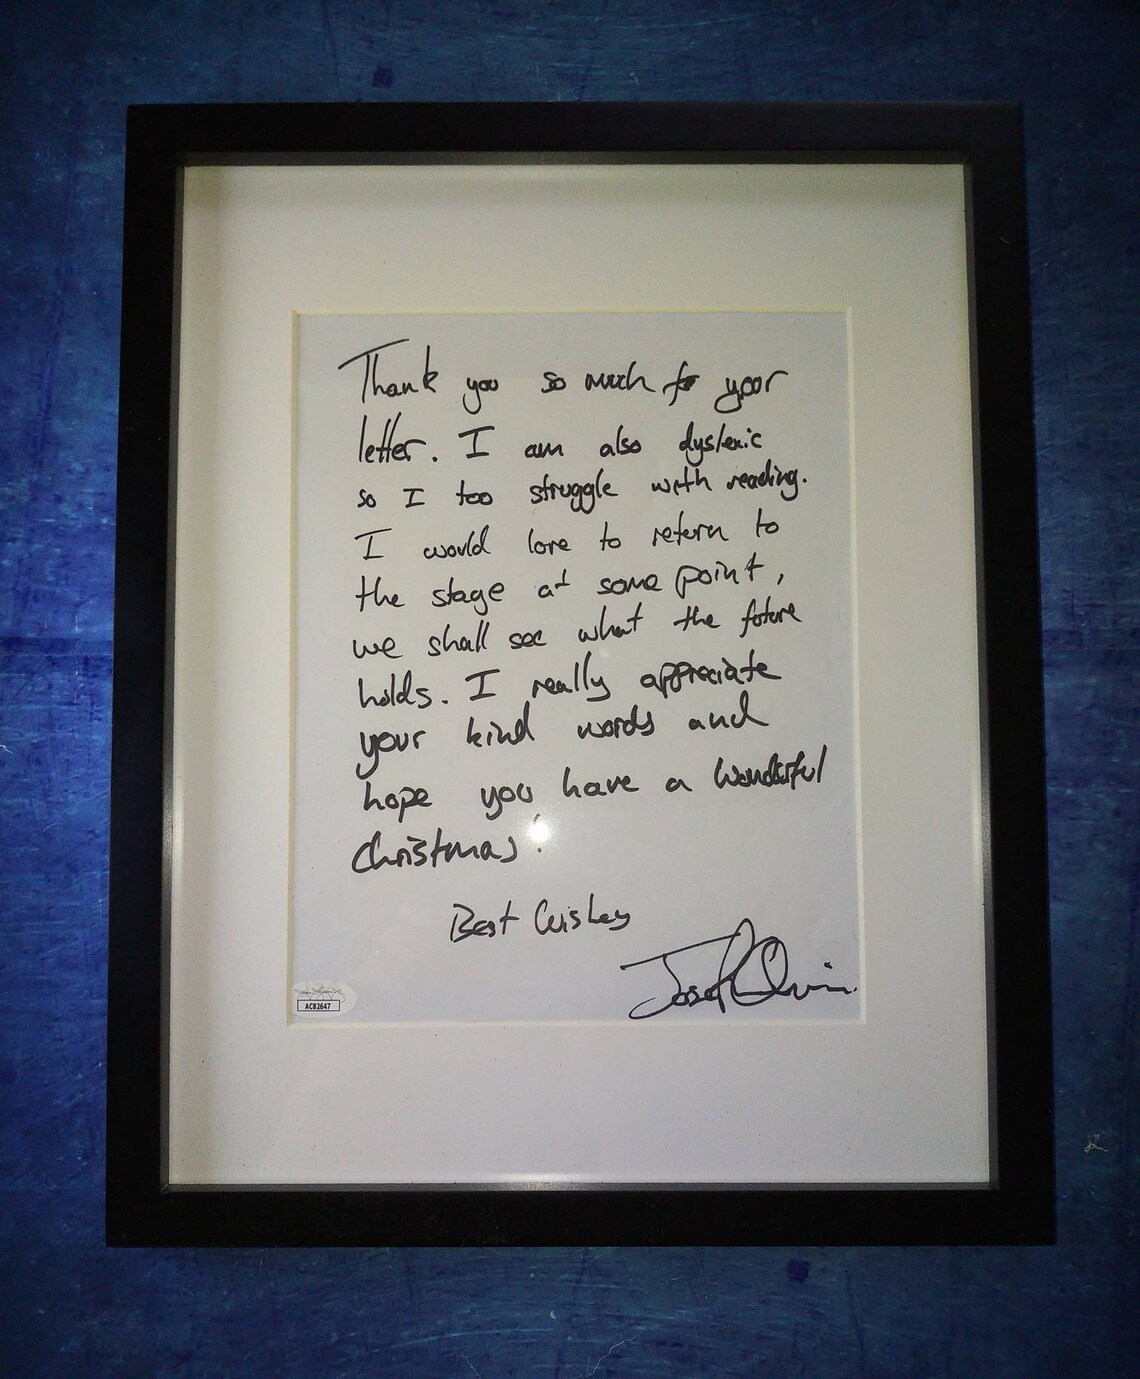 Thank you so much for your
letter. I am also dyslexic
so I too struggle with reading.
I would love to return to
the stage at some point,
we shall see what the future
holds. I really appreciate
your kind words and
hope you have a wonderful
Christmas!
Best Wishes
Joseph Quinn
AC82647